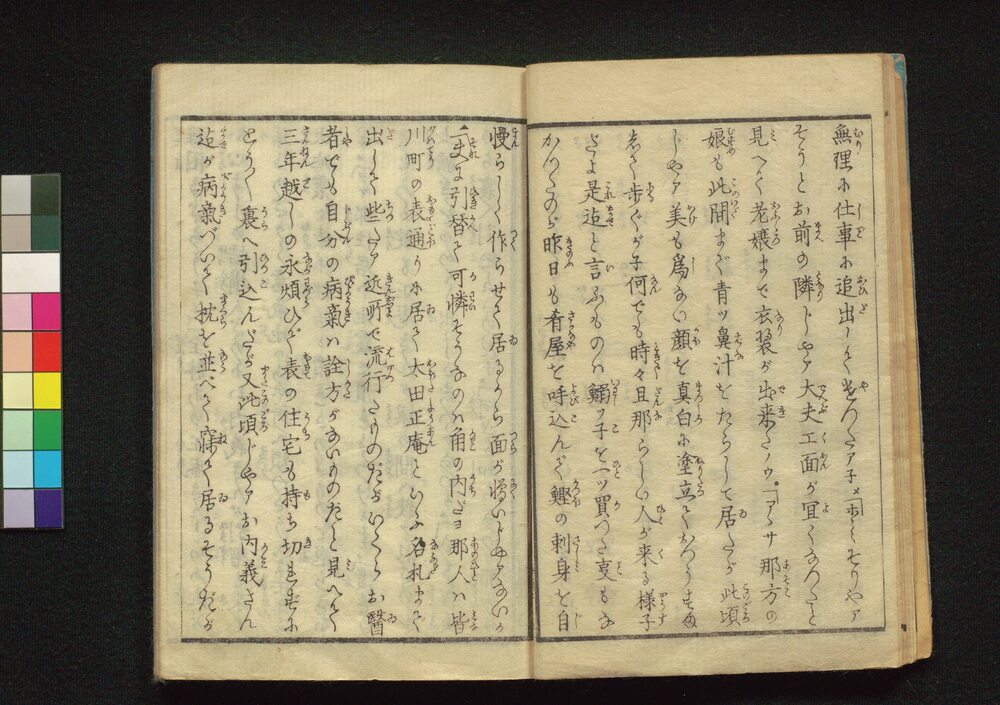 無理に仕事に追出して遣んだア子〆「ホンニそりやア
そうとお前の隣じやア大夫工面が宜くなつたと
見へて老孃まで衣裂が出来たノウ。「アヽサ那方の
娘も此間まで青ッ鼻汁をたらして居たが此頃
じやア美も為ない顔を真白に塗立て
歩くが子何でも時々旦那らしい人が来る様子
だよ是迄と言ふものは鰯ッ子を一ツ買つた事もな
かつたのが昨日も肴屋を呼込んで鰹の刺身を自
慢らしく作らせて居るから面が憎いじやアないか
夫に引替て可憐そうなのは角の内だヨ那人は皆
川町の表通りに居て太田正庵といふ名札まで
出して些たア近所で流行たものだがいくらお醫
者でも自分の病氣は詮方がないものだと見へて
三年越しの永煩ひで表の住宅も持ち切れずに
とう〳〵裏へ引込んだが又此頃じやアお内義さん
迄が病氣づいて枕を並べて寐て居るそうだが